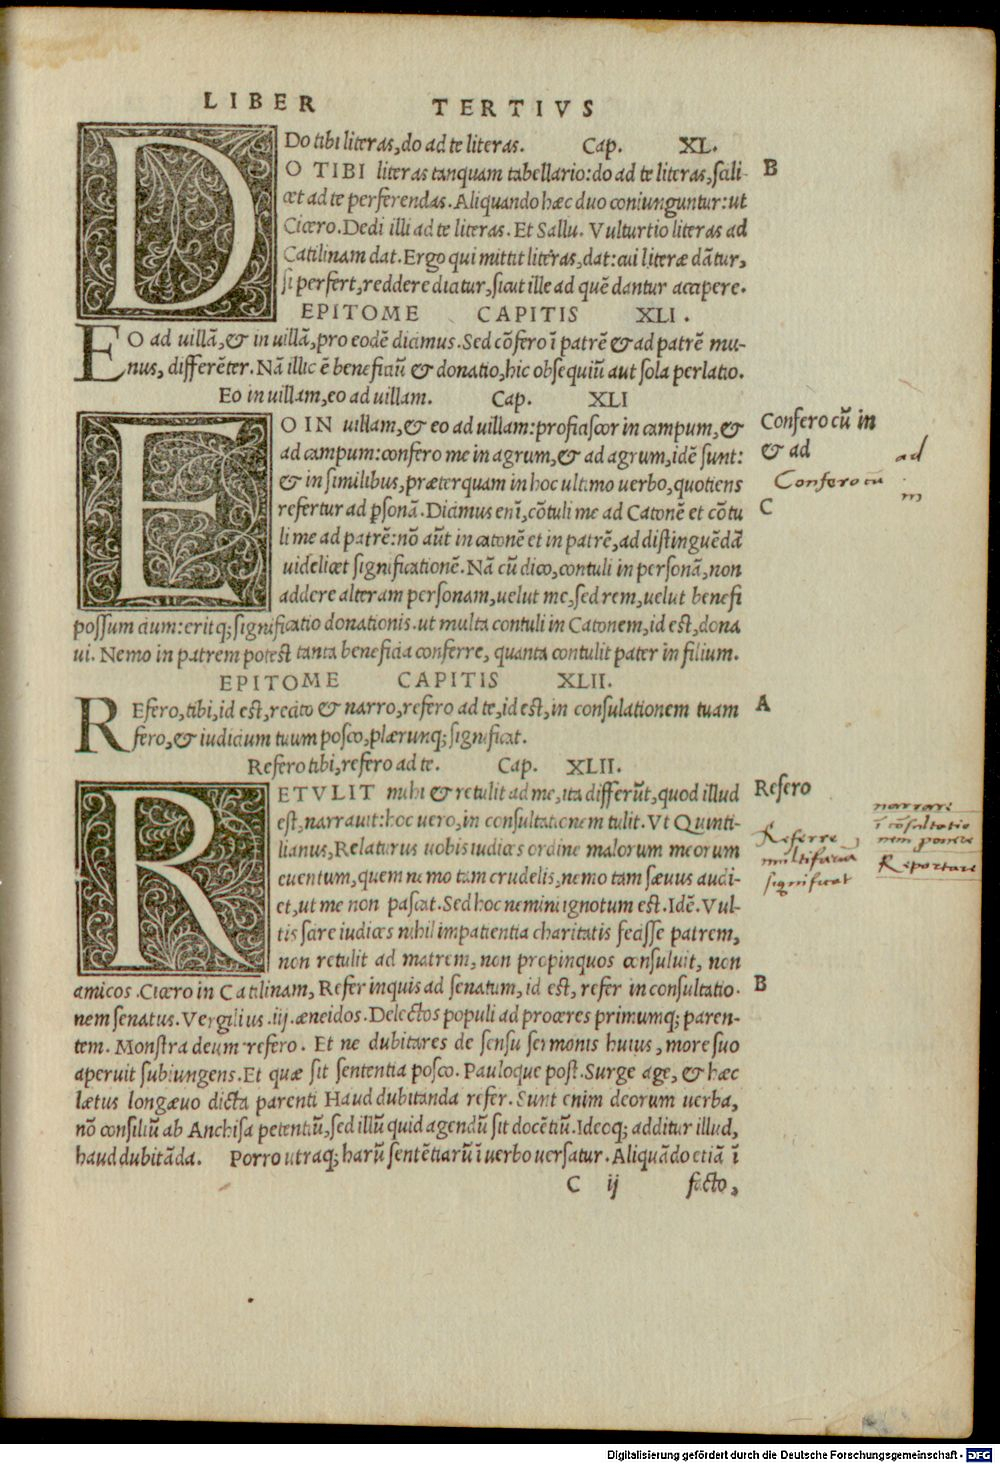 LIBER TERTIVS
Do tibi literas, do ad te literas. Cap. XL.
DO TIBI literas tanquam tabellario: do ad te literas, scili- B
cet ad te perferendas. Aliquando hæc duo coniunguntur: ut
Cicero. Dedi illi ad te literas. Et Sallu. Vulturtio literas ad
Catilinam dat. Ergo qui mittit literas, dat: cui literæ dãtur,
si perfert, reddere dicitur, sicut ille ad quẽ dantur accipere.
EPITOME CAPITIS XLI.
EO ad uillã, & in uillã, pro eodẽ dicimus. Sed cõfero ĩ patrẽ & ad patrẽ mu-
nus, differẽter. Nã illic ẽ beneficiũ & donatio, hic obsequiũ aut sola perlatio.
Eo in uillam, eo ad uillam. Cap. XLI
EO IN uillam, & eo ad uillam: proficiscor in campum, & Confero cũ in
ad campum: confero me in agrum, & ad agrum, idẽ sunt: & ad
ad
& in similibus, præterquam in hoc ultimo uerbo, quotiens Confero cũ
in
refertur ad ꝑsonã. Dicimus enĩ, cõtuli me ad Catonẽ et cõtu C
li me ad patrẽ: nõ aũt in catonẽ et in patrẽ, ad distinguẽdã
uidelicet significationẽ. Nã cũ dico, contuli in personã, non
addere alteram personam, uelut me, sed rem, uelut benefi
possum cium: eritq; significatio donationis. ut multa contuli in Catonem, id est, dona
ui. Nemo in patrem potest tanta beneficia conferre, quanta contulit pater in filium.
EPITOME CAPITIS XLII.
REfero, tibi, id est, recito & narro, refero ad te, id est, in consulationem tuam A
fero, & iudicium tuum posco, plærunq; significat.
Refero tibi, refero ad te. Cap. XLII.
RETVLIT mihi & retulit ad me, ita differũt, quod illud Refero
est, narrauit: hoc uero, in consultationem tulit. Vt Quinti-
lianus, Relaturus uobis iudices ordine malorum meorum
euentum, quem nemo tam crudelis, nemo tam sæuus audi-
et, ut me non pascat. Sed hoc nemini ignotum est. Idẽ. Vul-
tis scire iudices nihil impatientia charitatis fecisse patrem,
non retulit ad matrem, non propinquos consuluit, non
narrare
ĩ cõsultatio
nem ponere
Reportare
Referre
multifariam
significat
amicos. Cicero in Catilinam, Refer inquis ad senatum, id est, refer in consultatio- B
nem senatus. Vergilius .iij. æneidos. Delectos populi ad proceres primumq; paren-
tem. Monstra deum refero. Et ne dubitares de sensu sermonis huius, more suo
aperuit subiungens. Et quæ sit sententia posco. Pauloque post. Surge age, & hæc
lætus longæuo dicta parenti Haud dubitanda refer. Sunt enim deorum uerba,
nõ consiliũ ab Anchisa petentiũ, sed illũ quid agendũ sit docẽtiũ. Ideoq; additur illud,
haud dubitãda. Porro utraq; harũ sentẽtiarũ ĩ uerbo uersatur. Aliquãdo etiã ĩ
C ij facto,
Digitalisierung gefördert durch die Deutsche Forschungsgemeinschaft - DFG